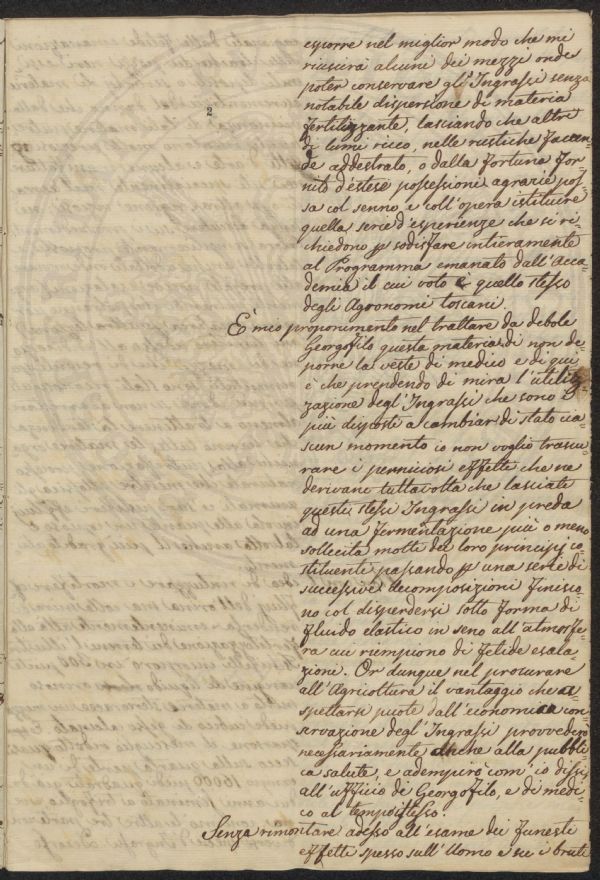 2
esporre nel miglior modo che mi
riuscirà alcuni dei mezzi onde
poter conservare gl'Ingrassi senza
notabile dispersione di materia
fertilizzante, lasciando che altri
di lumi ricco, nelle rustiche faccen=
de addestrato, o dalla fortuna for=
nito d'estese possessioni agrarie pos=
sa col senno, e coll'opera istituire
quella serie d'esperienze che si ri=
chiedono p sodisfare intieramente
al Programma emanato dall'Acca=
demia il cui voto è quello stesso
degli Agronomi toscani.
È mio proponimento nel trattare da debole
Georgofilo questa materia di non de
porre la veste di medico e di qui
è che prendendo di mira l'utiliz=
zazione degl'Ingrassi che sono i
più disposti a cambiar di stato cia=
scun momento io non voglio trascu=
rare i perniciosi effetti che ne
derivano tuttavolta che lasciati
questi stessi Ingrassi in preda
ad una fermentazione più o meno
sollecita molti dei loro principj co=
stituenti passando p una serie di
successive decomposizioni finisco=
no col disperdersi sotto forma di
fluido elastico in seno all'atmosfe=
ra cui riempiono di fetide esala=
zioni. Or dunque nel procurare
all'Agricoltura il vantaggio che a
spettarsi puote dall'economica con
servazione degl'Ingrassi provvederò
necessariamente anche alla pubbli=
ca salute, e adempirò com'io dissi
all'ufficio di Georgofilo, e di medi=
co al tempo stesso.
Senza rimontare adesso all'esame dei funesti
effetti spesso sull'Uomo e su i bruti